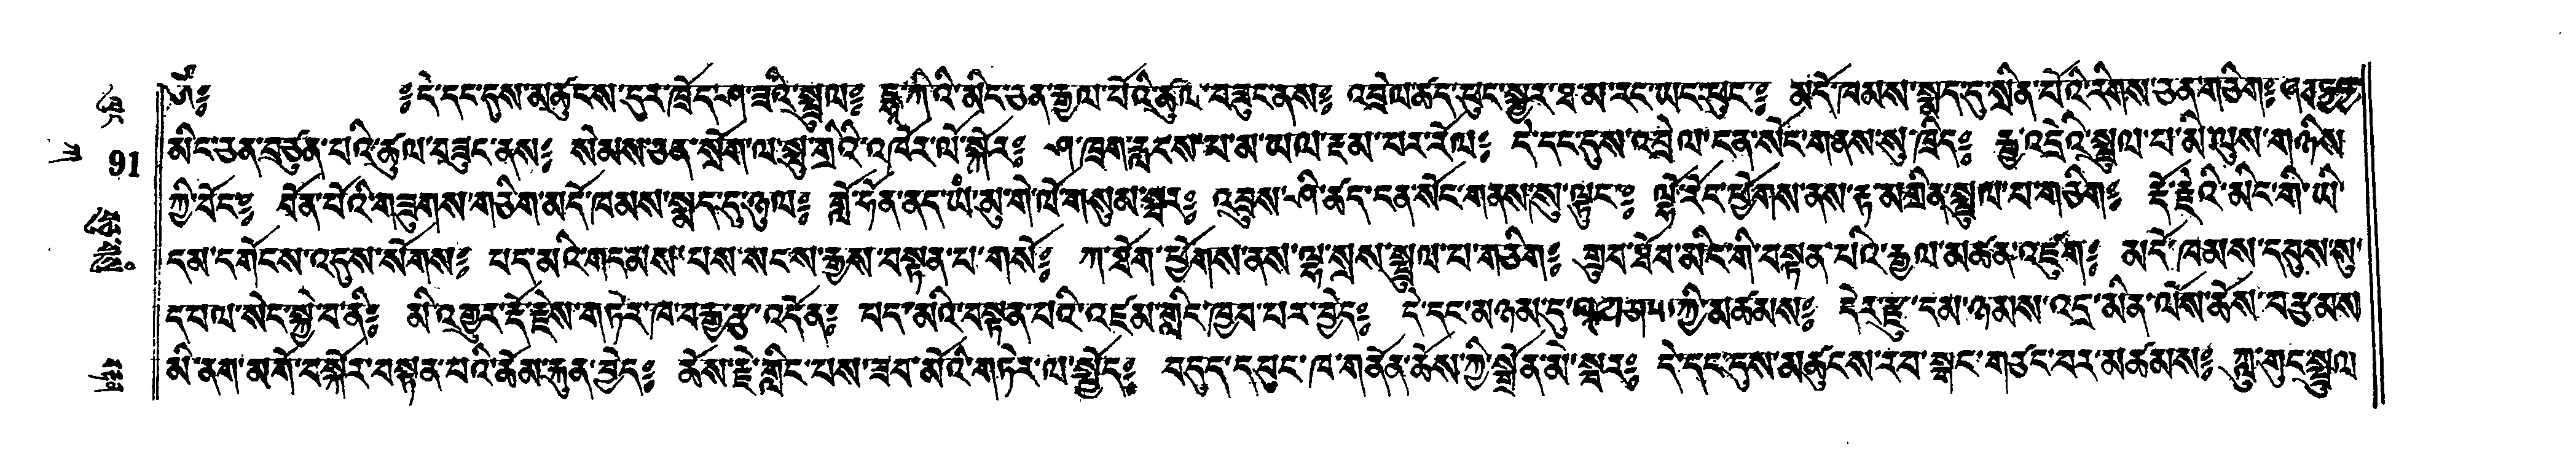 ༄༅༔ ༔དེ་དང་དུས་མཚུངས་དུར་ཁྲོད་ཤ་ཟའི་སྤྲུལ༔ རྟ་ཀིའི་མིང་ཅན་རྒྱལ་པོའི་ཚུལ་བཟུང་ནས༔ འབྲེལ་ཚད་ཕུང་སྦྱོར་ཐ་མ་རང་ཡང་ཕུང༔ མདོ་ཁམས་སྨད་དུ་སྲིན་པོའི་རིགས་ཅན་གཅིག༔
མིང་ཅན་བཙུན་པའི་ཚུལ་བཟུང་ནས༔ སེམས་ཅན་སྲོག་ལ་སྤུ་གྲིའི་འཁོར་ལོ་སྐོར༔ ཤ་ཁྲག་རླངས་པ་མ་ཡལ་ཟས་པར་རོལ༔ དེ་དང་དུས་འབྲེལ་ངན་སོང་གནས་སུ་ཁྲིད༔ རྒྱ་འདྲེའི་སྤྲུལ་པ་མི་ལུས་གཉིས
ཀྱི་བོང༔ བོན་པོའི་གཟུགས་གཅིག་མདོ་ཁམས་སྨད་དུ་ཉུལ༔ གློ་ཧོན་ནད་ཡཾ་མུ་གེ་ལོ་གསུམ་སྦར༔ འབྲས་ཤི་ཚད་ངན་སོང་གནས་སུ་ལྟུང༔ ལྷོ་རོང་ཕྱོགས་ནས་རྟ་མགྲིན་སྤྲུལ་པ་གཅིག༔ རྡོ་རྗེའི་མིང་གི་ཡི
དམ་དགོངས་འདུས་སོགས༔ པད་མའི་གདམས་པས་སངས་རྒྱས་བསྟན་པ་གསོ༔ ཀ་ཐོག་ཕྱོགས་ནས་ལྷ་སྲས་སྤྲུལ་པ་གཅིག༔ གྲུབ་ཐོབ་མིང་གི་བསྟན་པའི་རྒྱལ་མཚན་འཛུག༔ མདོ་ཁམས་དབུས་སུ
དཔལ་སེང་སྐྱེ་བ་ནི༔ མི་འགྱུར་རྡོ་རྗེས་གཏེར་ཁ་བརྒྱ་རྩ་འདོན༔ པད་མའི་བསྟན་པའི་འཛམ་གླིང་ཁྱབ་པར་བྱེད༔ དེ་དང་མ་ཉམ་དུ་ ཀྱི་མཚམས༔ དེར་རྫུ་དམ་ཉམས་འདྲ་མིན་ལོས་ཆོས་བརྩམས
མི་ནག་མགོ་བསྐོར་བསྟན་པའི་ཆོམ་རྐུན་བྱེད༔ ཆོས་རྗེ་གླིང་པས་ཟབ་མོའི་གཏེར་ལ་སྤྱོད༔ བདུད་དཔུང་ཁ་གནོན་ཆོས་ཀྱི་སྒྲོན་མེ་སྦར༔ དེ་དང་དུས་མཚུངས་རབ་སྒང་གཙང་བར་མཚམས༔ ཀླུ་གདུག་སྤྲུལ
91